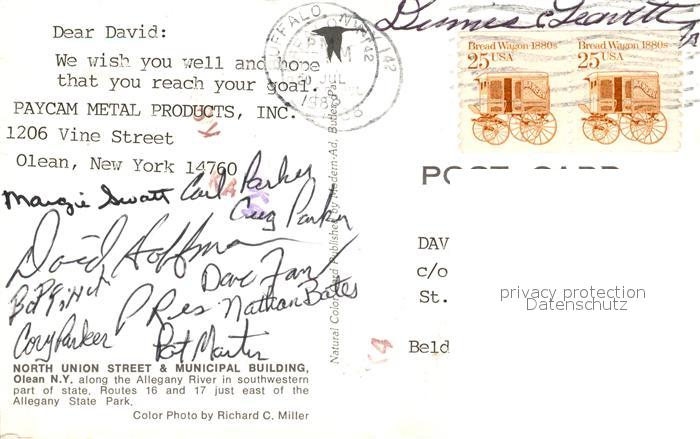 Dear David:
We wish you well and hope
that you reach your goal.
PAYCAM METAL PRODUCTS, INC.
1206 Vine Street
Olean, New York 14760
Margie Swatt Carl Parker
Greg Parker
David Hoffman
Dave
Nathan Bates
Cory Parker
Pat Martin
NORTH UNION STREET & MUNICIPAL BUILDING,
Olean N.Y. along the Allegany River in southwestern
part of state. Routes 16 and 17 just east of the
Allegany State Park.
Color Photo by Richard C. Miller
Natural Color Card Published by Modern-Ad, Butler, Pa.
BUFFALO, NY 142
PM
JUL
Dennis C Leavitt
Bread Wagon 1880s
25 USA
Bread Wagon 1880s
25 USA
BAKERY
POST CARD
DAV
c/o
St.
Beld
privacy protection
Datenschutz